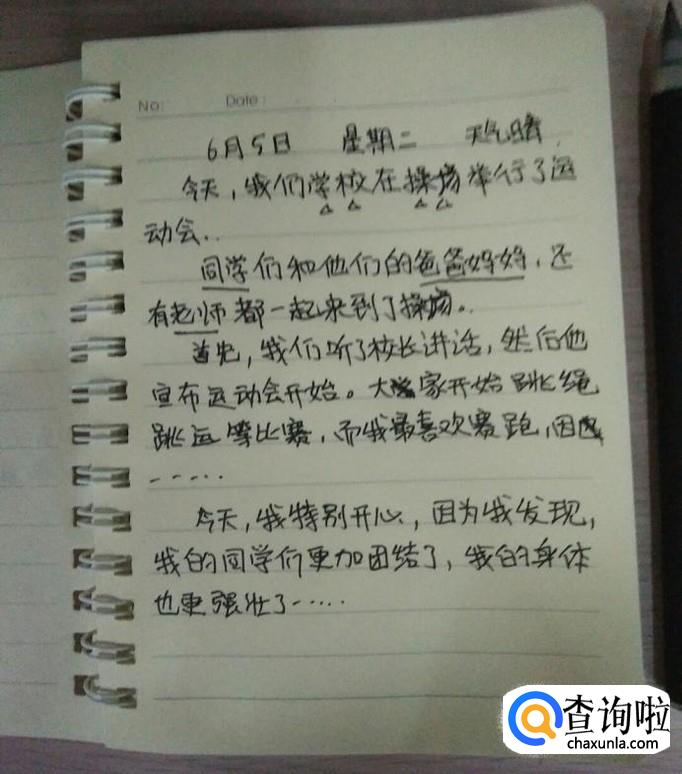 No:    Date:
6月5日 星期二 天气晴
今天,我们学校在操场举行了运
动会..
同学们和他们的爸爸妈妈,还
有老师都一起来到了操场。
首先,我们听了校长讲话,然后他
宣布运动会开始。大家开始跳绳
跳远等比赛,而我最喜欢赛跑,因为
......
今天,我特别开心,因为我发现,
我的同学们更加团结了,我的身体
也更强壮了......
查询啦
chaxunla.com